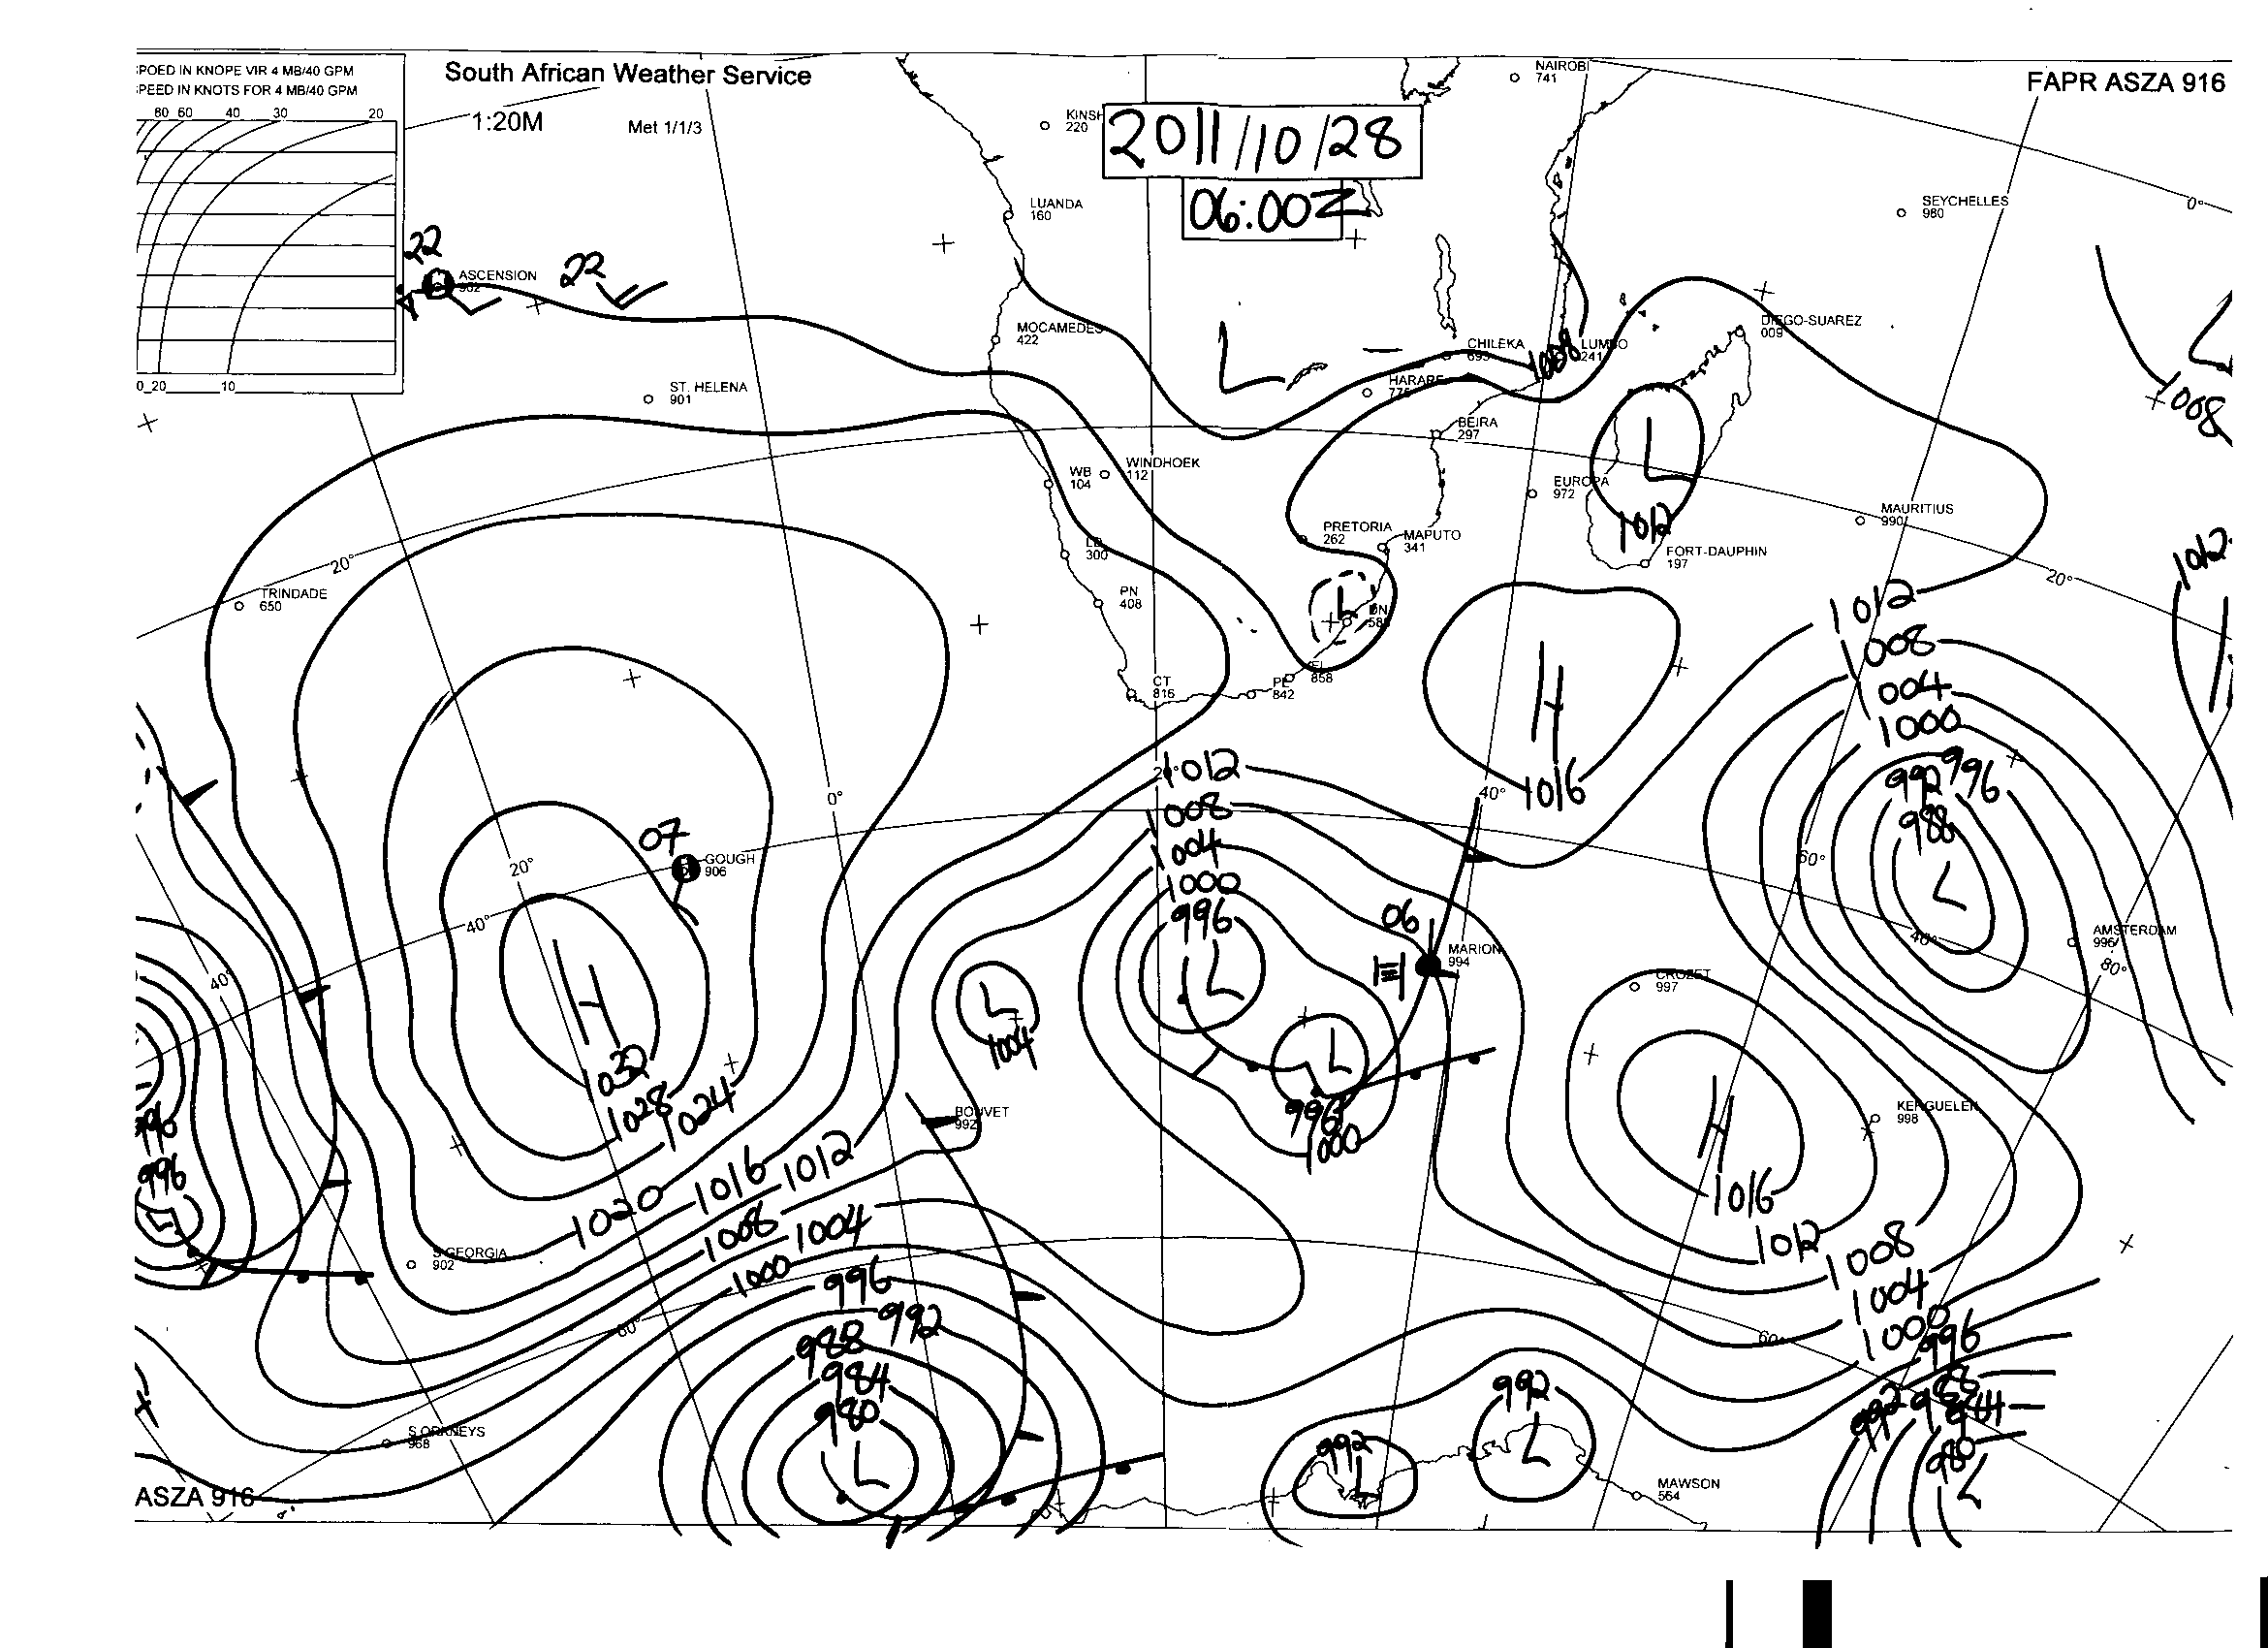 SPEED IN KNOTS FOR 4 MB/40 GPM
80 60 40 30 20
0 20 10
South African Weather Service
1:20M
Met 1/1/3
FAPR ASZA 916
2011/10/28
06:00Z
NAIROBI
741
220
LUANDA
160
SEYCHELLES
980
0°
22
ASCENSION
22
MOCAMEDES
422
CHILEKA
693
1008
DIEGO-SUAREZ
009
L
L
1008
ST. HELENA
901
HARARE
BEIRA
297
L
WB
104
WINDHOEK
112
EUROPA
972
1012
MAURITIUS
990
PRETORIA
262
MAPUTO
341
FORT-DAUPHIN
197
1012
20°
20°
TRINDADE
650
300
PN
408
L
DN
1012
1008
1004
1000
H
1016
CT
816
PE
842
858
1012
1008
1004
1000
996
40°
0°
07
GOUGH
906
20°
40°
40°
992
996
988
L
60°
40°
AMSTERDAM
996
80°
06
MARION
994
CROZET
997
H
1032
1028
1024
L
1004
L
L
996
1000
BOUVET
992
H
1016
1012
1008
1004
1000
996
KERGUELEN
998
996
996
L
1020
1016
1012
1008
1004
1000
996
992
988
984
980
L
S.GEORGIA
902
60°
60°
S.ORKNEYS
968
992
L
992
L
MAWSON
564
992
988
984
980
L
ASZA 916